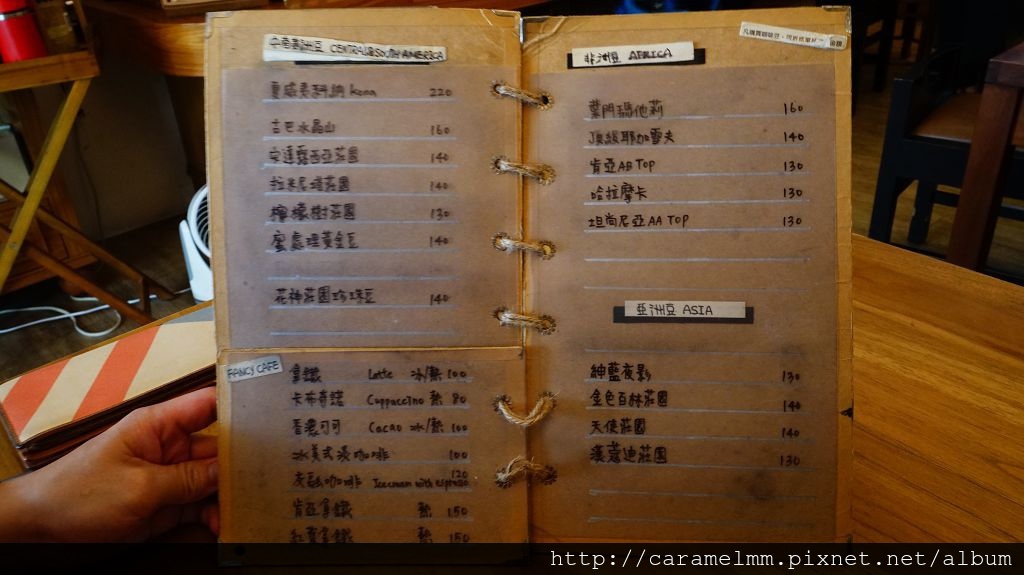 中南美洲豆 CENTRAL&SOUTH AMERICA
夏威夷科納 Kona 220
古巴水晶山 160
安達露西亞莊園 140
拉米尼塔莊園 140
檸檬樹莊園 130
蜜處理黃金豆 140
花神莊園珍珠豆 140
FANCY CAFE
拿鐵 Latte 冰/熱 100
卡布奇諾 Cappuccino 熱 80
香濃可可 Cacao 冰/熱 100
冰美式漫咖啡 100
120
咖啡 Icecream with espresso
肯亞拿鐵 熱 150
紅寶拿鐵 熱 150
非洲豆 AFRICA
葉門瑪他莉 160
頂級耶加雪夫 140
肯亞AB TOP 130
哈拉摩卡 130
坦尚尼亞AA TOP 130
亞洲豆 ASIA
紳藍夜影 130
金色百林莊園 140
天使莊園 140
漢蔻迪莊園 130
http://caramelmm.pixnet.net/album